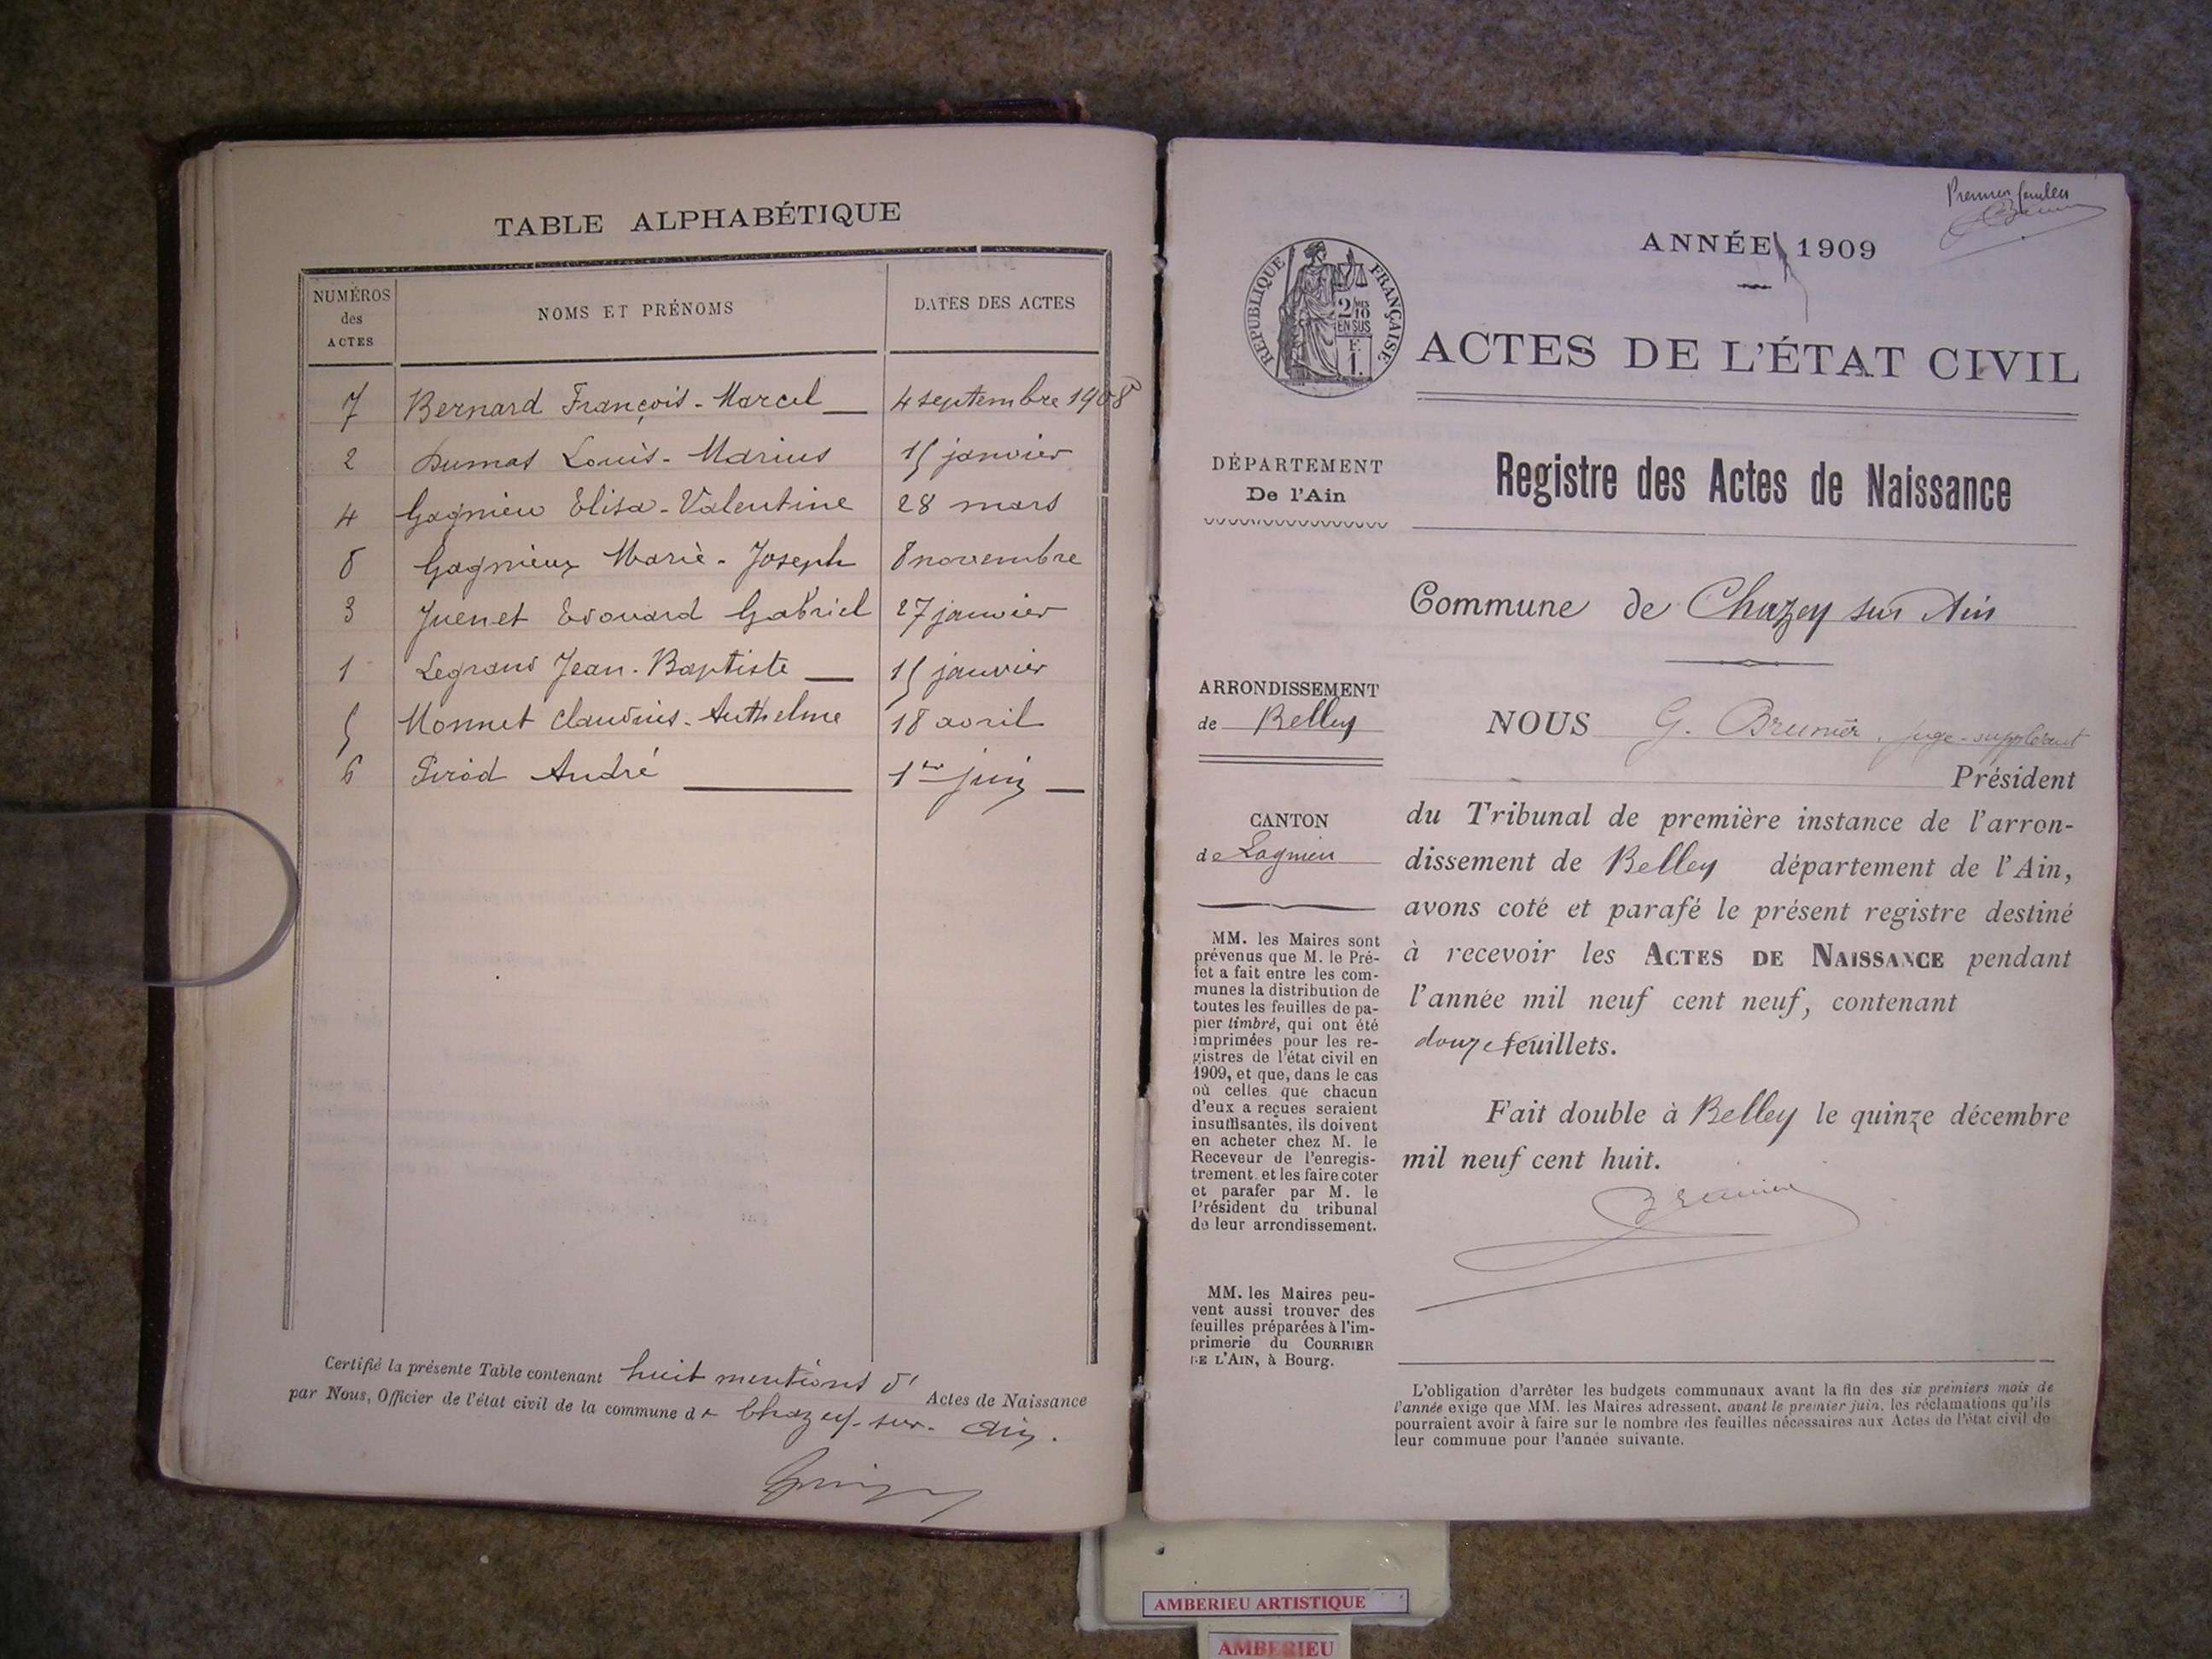 TABLE ALPHABÉTIQUE
NUMÉROS
des
ACTES
NOMS ET PRÉNOMS
DATES DES ACTES
7 Bernard François-Marcel 4 septembre 1908
2 Dumas Louis-Marius 15 janvier
4 Gagnieu Elisa-Valentine 28 mars
8 Gagnieux Marie-Joseph 8 novembre
3 Juenet Edouard Gabriel 27 janvier
1 Legrand Jean-Baptiste 15 janvier
5 Monnet Claudius-Anthelme 18 avril
6 Pirod André 1er juin
Certifié la présente Table contenant huit mentions d' Actes de Naissance
par Nous, Officier de l'état civil de la commune de Chazey-sur-Ain.
Premier feuillet
ANNÉE 1909
RÉPUBLIQUE FRANÇAISE
2/10 MES
EN SUS
F.
1.
ACTES DE L'ÉTAT CIVIL
DÉPARTEMENT
De l'Ain
Registre des Actes de Naissance
Commune de Chazey sur Ain
ARRONDISSEMENT
de Belley
NOUS G. Brunier, juge-suppléant
Président
CANTON
de Lagnieu
du Tribunal de première instance de l'arron-
dissement de Belley département de l'Ain,
avons coté et parafé le présent registre destiné
à recevoir les ACTES DE NAISSANCE pendant
l'année mil neuf cent neuf, contenant
douze feuillets.
Fait double à Belley le quinze décembre
mil neuf cent huit.
MM. les Maires sont
prévenus que M. le Pré-
fet a fait entre les com-
munes la distribution de
toutes les feuilles de pa-
pier timbré, qui ont été
imprimées pour les re-
gistres de l'état civil en
1909, et que, dans le cas
où celles que chacun
d'eux a reçues seraient
insuffisantes, ils doivent
en acheter chez M. le
Receveur de l'enregis-
trement, et les faire coter
et parafer par M. le
Président du tribunal
de leur arrondissement.
MM. les Maires peu-
vent aussi trouver des
feuilles préparées à l'im-
primerie du COURRIER
DE L'AIN, à Bourg.
L'obligation d'arrêter les budgets communaux avant la fin des six premiers mois de
l'année exige que MM. les Maires adressent, avant le premier juin, les réclamations qu'ils
pourraient avoir à faire sur le nombre des feuilles nécessaires aux Actes de l'état civil de
leur commune pour l'année suivante.
AMBERIEU ARTISTIQUE
AMBERIEU